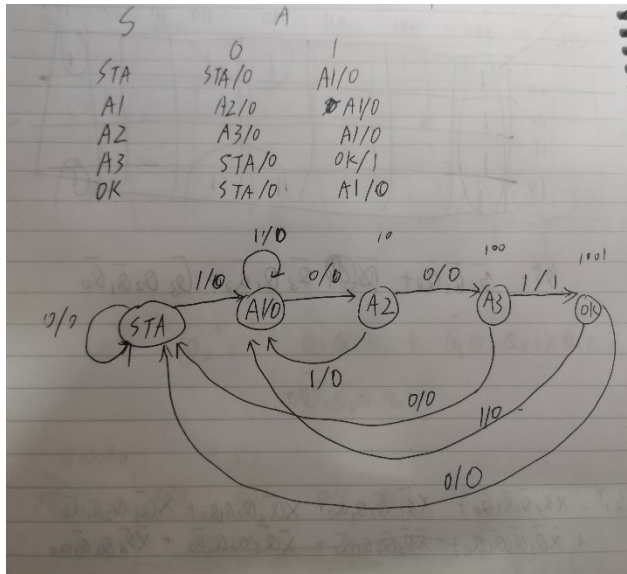 S A
0 1
STA STA/0 A1/0
A1 A2/0 A1/0
A2 A3/0 A1/0
A3 STA/0 OK/1
OK STA/0 A1/0
1/0 10 100 1001
1/0 0/0 0/0 1/1
0/0 STA A1/0 A2 A3 OK
1/0
0/0 1/0
0/0